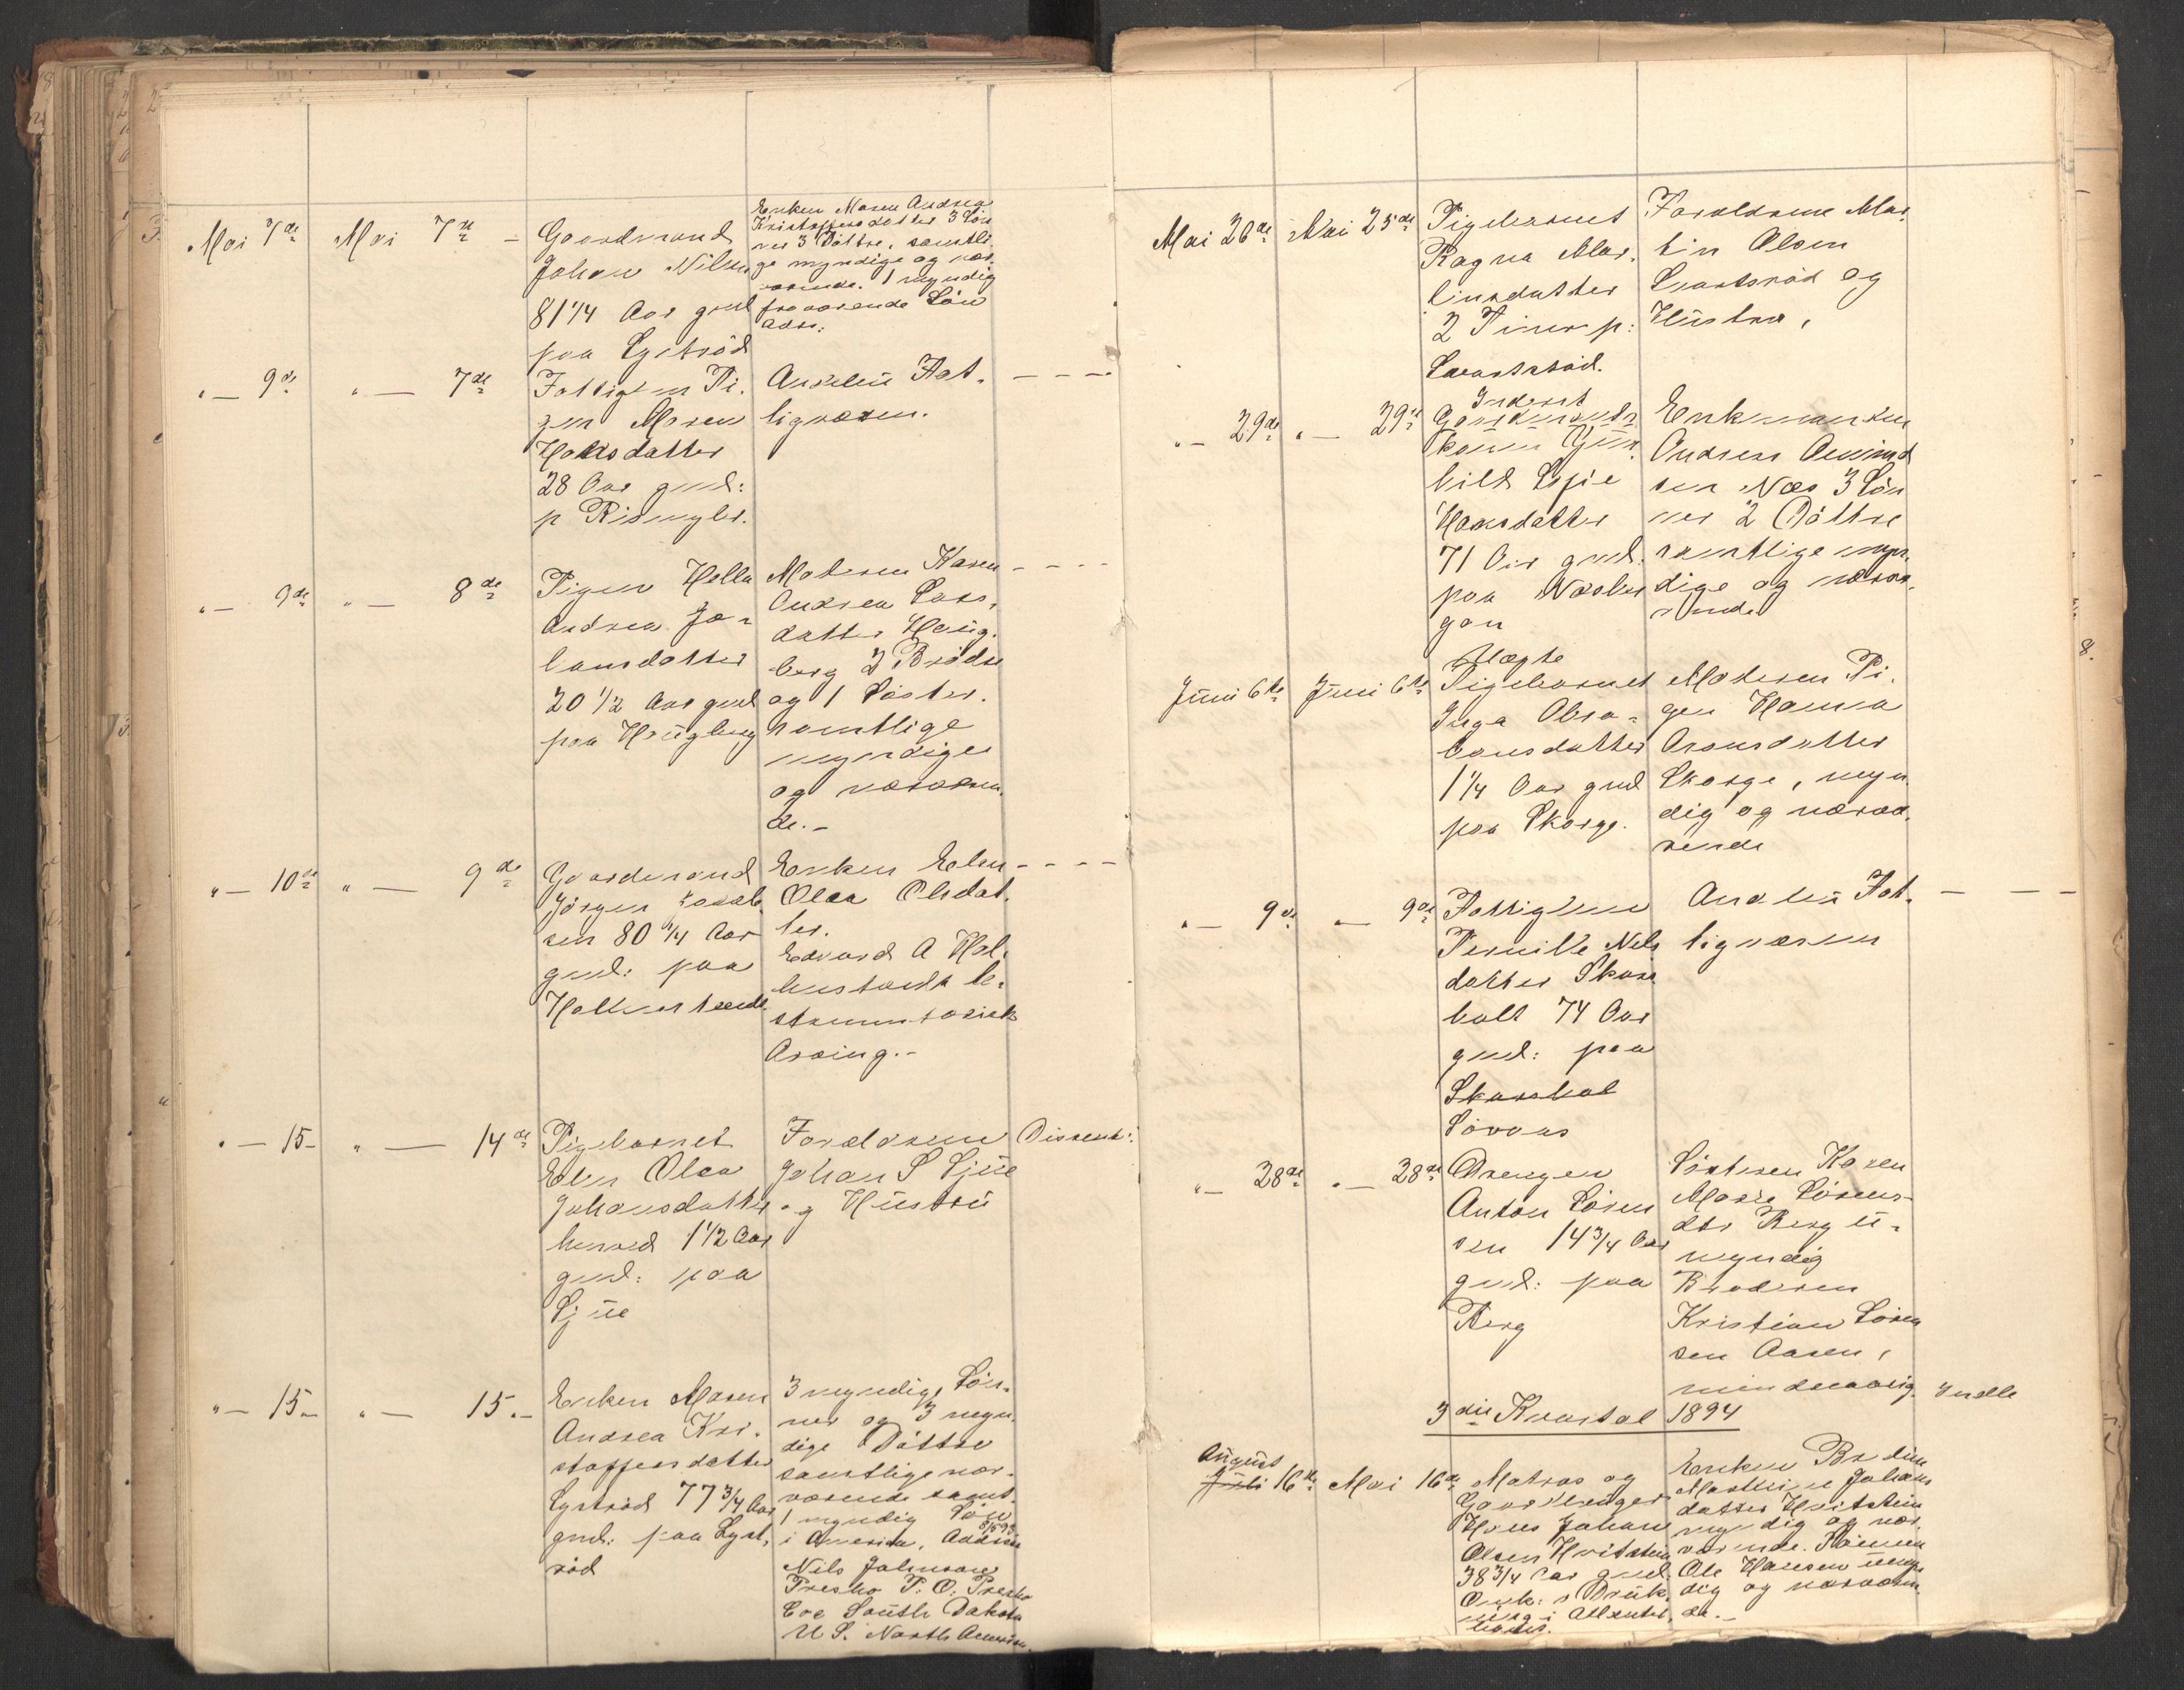 Mai 7de Mai 7de Gaardmand
Johan Nilsen
81 1/4 Aar gml
paa Lystrød
Enken Maren Andrea
Kristoffersdatter 3 Søn
ner 3 Døttre, samtli
ge myndige og nær
værende. 1 myndig
fraværende Søn
Adrs:
" — 9de " — 7de Fattiglem Pi-
gen Maren
Hansdatter
28 Aar gml:
p
Anselin Fat-
tigvæsen. - - - -
" — 9de " — 8de Pigen Hella
Andrea Ja-
konsdatter
20 1/2 Aar gml
paa Haugberg
Moderen Karen - - - -
Andrea Lars-
datter Haug-
berg 2 Brødre
og 1 Søster.
samtlige
myndige
og nærværen-
de. -
" — 10de " — 9de Gaardmand
Jørgen Jacob-
sen 80 1/4 Aar
gml: paa
Enken Elen - - - -
Olea Olsdat-
ter.
Edvard A Hol-
te-
stamentarisk
Arving. -
" — 15 - " — 14de Pigebarnet
Elen Olea
Johansdatter
1 1/2 Aar
gml: paa
Sjue
Forældrene
Johan S Sjue
og Hustru
Dissent:
" — 15 - " — 15. - Enken Maren
Andrea Kri-
stoffersdatter
Lystrød 77 3/4 Aar
gml: paa Lyst-
rød
3 myndige Søn-
ner og 3 myn-
dige Døttre
samtlige nær-
værende samt
1 myndig Søn
i Amerika, Adresse
Nils Johnson
Presho P. O. Presho
Coe South Dakota
U S. North America
Mai 26de Mai 25de Pigebarnet
Ragna Mar-
tinsdatter
2 Timer p:
Svartsrød.
Forældrene Mar-
tin Olsen
Svartsrød og
Hustru,
" — 29de " — 29de Inderst
Gaardmands
kone Gun-
hild Sofie
Hansdatter
71 Aar gml.
paa
Enkemanden
Andreas Amund
sen Næs 3 Søn
ner 2 Døttre
samtlige myn-
dige og nærvæ-
rende
Juni 6te Juni 6te Uægte
Pigebarnet
Inga Abra-
hamsdatter
1 1/4 Aar gml
paa Skorge.
Moderen Pi-
gen Hanna
Aronsdatter
Skorge, myn-
dig og nærvæ-
rende
" — 9de " — 9de Fattiglem
Pernille Nils
datter Skars
holt 74 Aar
gml: paa
Skarshol
Anselin Fat-
tigvæsen - - -
" — 28de " — 28de Drengen
Anton Søren
sen 14 3/4 Aar
gml: paa
Berg
Søsteren Karen
Marie Sørens-
dtr Berg u-
myndig
Broderen
Kristian Søren
sen Aasen,
mindreaarig. Indk
3die Kvartal 1894
August
Juli 16de Mai 16de Matros og
Gaardbruger
Hans Johan
Olsen Hvitstein
38 3/4 Aar gml.
Omk: v Druk-
ning i Atlanter-
havet.
Enken Bredine
Mathilde Johans
datter Hvitstein
myndig og nær-
værende. Sønnen
Ole Hansen umyn
dig og nærværen-
de. -